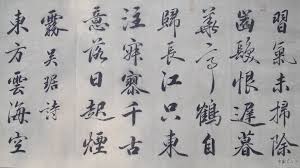 習氣未掃除
齒髮恨遲暮
華亭鶴自
歸長江只東
注寂寥千古
意落日起煙
霧 吳琚詩
東方雲海空